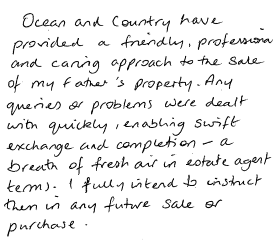 Ocean and Country have
provided a friendly, profession
and caring approach to the sale
of my father's property. Any
queries or problems were dealt
with quickly, enabling swift
exchange and completion – a
breath of fresh air in estate agent
terms. I fully intend to instruct
them in any future sale or
purchase.